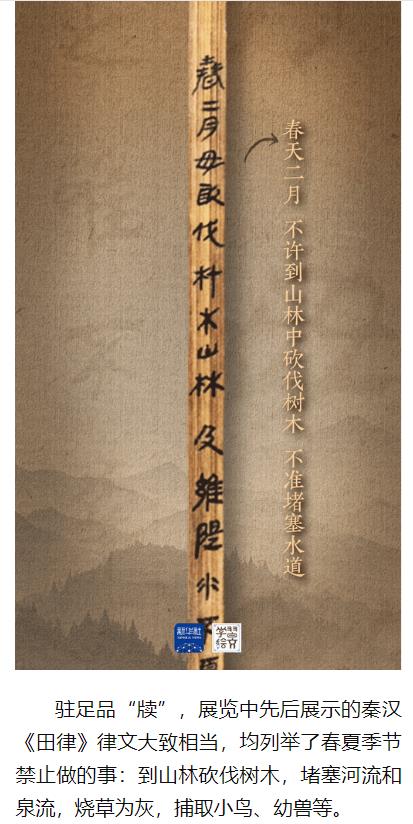 春二月毋敢伐材木山林及雍隄水
春天二月 不许到山林中砍伐树木 不准堵塞水道
新华社
驻足品“牍”，展览中先后展示的秦汉
《田律》律文大致相当，均列举了春夏季节
禁止做的事：到山林砍伐树木，堵塞河流和
泉流，烧草为灰，捕取小鸟、幼兽等。